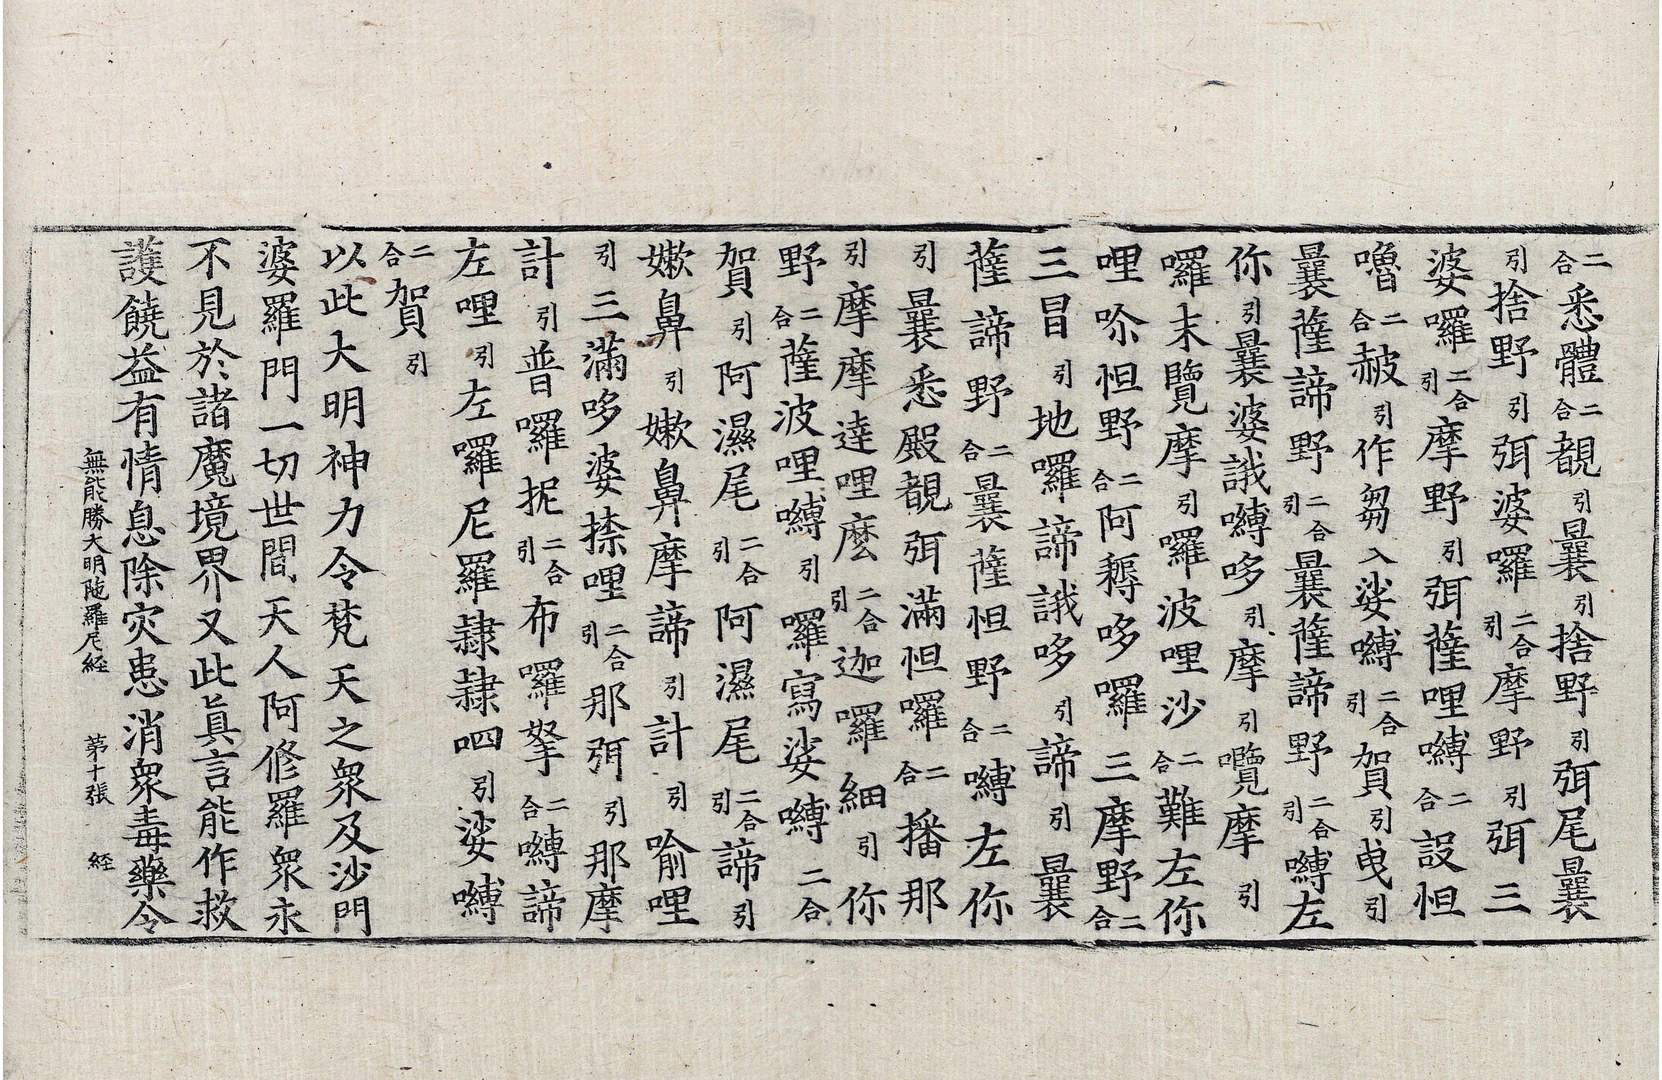 二合悉體二合覩引曩引捨野引弭尾曩
引捨野引弭婆囉二合引摩野引弭三
婆囉二合引摩野引弭薩哩嚩二合設怛
嚕二合赧引作芻入娑嚩二合引賀引曵引
曩薩諦野二合引曩薩諦野二合引嚩左
你引曩婆誐嚩哆引摩引囕摩引
囉末覽摩引囉波哩沙二合難左你
哩吤怛野二合阿耨哆囉三摩野二合
三冒引地囉諦誐哆引諦引曩
薩諦野二合曩薩怛野二合嚩左你
引曩悉殿覩弭滿怛囉二合播那
引摩摩達哩麽二合引迦囉細引你
野二合薩波哩嚩引囉寫娑嚩二合
賀引阿濕尾二合引阿濕尾二合引諦引
嫰鼻引嫰鼻摩諦引計引喻哩
引三滿哆婆捺哩二合引那弭引那摩
計引普囉抳二合引布囉拏二合嚩諦
左哩引左囉尼羅隷隷呬引娑嚩
二合賀引
以此大明神力令梵天之衆及沙門
婆羅門一切世間天人阿修羅衆永
不見於諸魔境界又此眞言能作救
護饒益有情息除灾患消衆毒藥令
無能勝大明陁羅尼經 苐十張 経